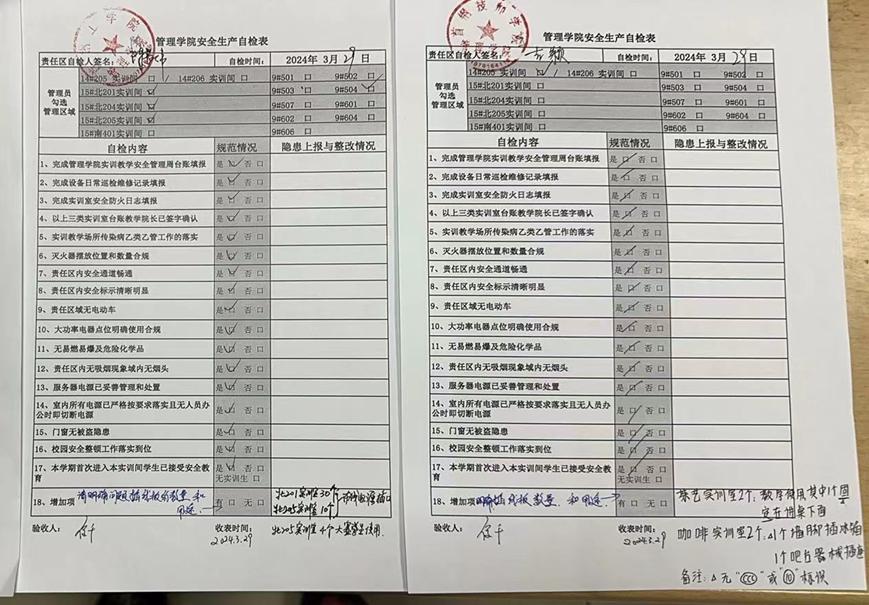 管理学院安全生产自检表
责任区自检人签名：
自检时间：
2024年 3月 29 日
管理员
勾选
管理区域
14#205 实训间 口
14#206 实训间 口
9#501 口
9#502 口
15#北201实训间 口
9#503 口
9#504 口
15#北204实训间 口
9#507 口
9#601 口
15#北205实训间 口
9#602 口
9#604 口
15#南401实训间 口
9#606 口
自检内容
规范情况
隐患上报与整改情况
1、完成管理学院实训教学安全管理周台账填报
是 口 否 口
2、完成设备日常巡检维修记录填报
是 口 否 口
3、完成实训室安全防火日志填报
是 口 否 口
4、以上三类实训室台账教学院长已签字确认
是 口 否 口
5、实训教学场所传染病乙类乙管工作的落实
是 口 否 口
6、灭火器摆放位置和数量合规
是 口 否 口
7、责任区内安全通道畅通
是 口 否 口
8、责任区内安全标示清晰明显
是 口 否 口
9、责任区域无电动车
是 口 否 口
10、大功率电器点位明确使用合规
是 口 否 口
11、无易燃易爆及危险化学品
是 口 否 口
12、责任区内无吸烟现象域内无烟头
是 口 否 口
13、服务器电源已妥善管理和处置
是 口 否 口
14、室内所有电源已严格按要求落实且无人员办
公时即切断电源
是 口 否 口
15、门窗无被盗隐患
是 口 否 口
16、校园安全整顿工作落实到位
是 口 否 口
17、本学期首次进入本实训间学生已接受安全教
育
是 口 否 口
无实训生 口
18、增加项
数量和
用途
有 口 无 口
北201实训室30个
北205实训室10个
北205实训室4个大赛学生使用
验收人：
收表时间：
2024.3.29
管理学院安全生产自检表
责任区自检人签名：
自检时间：
2024年 3月 29日
管理员
勾选
管理区域
14#205 实训间 口
14#206 实训间 口
9#501 口
9#502 口
15#北201实训间 口
9#503 口
9#504 口
15#北204实训间 口
9#507 口
9#601 口
15#北205实训间 口
9#602 口
9#604 口
15#南401实训间 口
9#606 口
自检内容
规范情况
隐患上报与整改情况
1、完成管理学院实训教学安全管理周台账填报
是 口 否 口
2、完成设备日常巡检维修记录填报
是 口 否 口
3、完成实训室安全防火日志填报
是 口 否 口
4、以上三类实训室台账教学院长已签字确认
是 口 否 口
5、实训教学场所传染病乙类乙管工作的落实
是 口 否 口
6、灭火器摆放位置和数量合规
是 口 否 口
7、责任区内安全通道畅通
是 口 否 口
8、责任区内安全标示清晰明显
是 口 否 口
9、责任区域无电动车
是 口 否 口
10、大功率电器点位明确使用合规
是 口 否 口
11、无易燃易爆及危险化学品
是 口 否 口
12、责任区内无吸烟现象域内无烟头
是 口 否 口
13、服务器电源已妥善管理和处置
是 口 否 口
14、室内所有电源已严格按要求落实且无人员办
公时即切断电源
是 口 否 口
15、门窗无被盗隐患
是 口 否 口
16、校园安全整顿工作落实到位
是 口 否 口
17、本学期首次进入本实训间学生已接受安全教
育
是 口 否 口
无实训生 口
18、增加项
插线板数量和用途
有 口 无 口
茶艺实训室2个，教学使用其中1个固
定在讲桌下面
咖啡实训室2个，1个墙脚插冰箱
1个吧台器械插座
备注：无"CCC"或标识
验收人：
收表时间：
2024.3.29